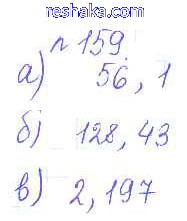 reshaka.com
n 159
а) 56,1
б) 128,43
в) 2,197